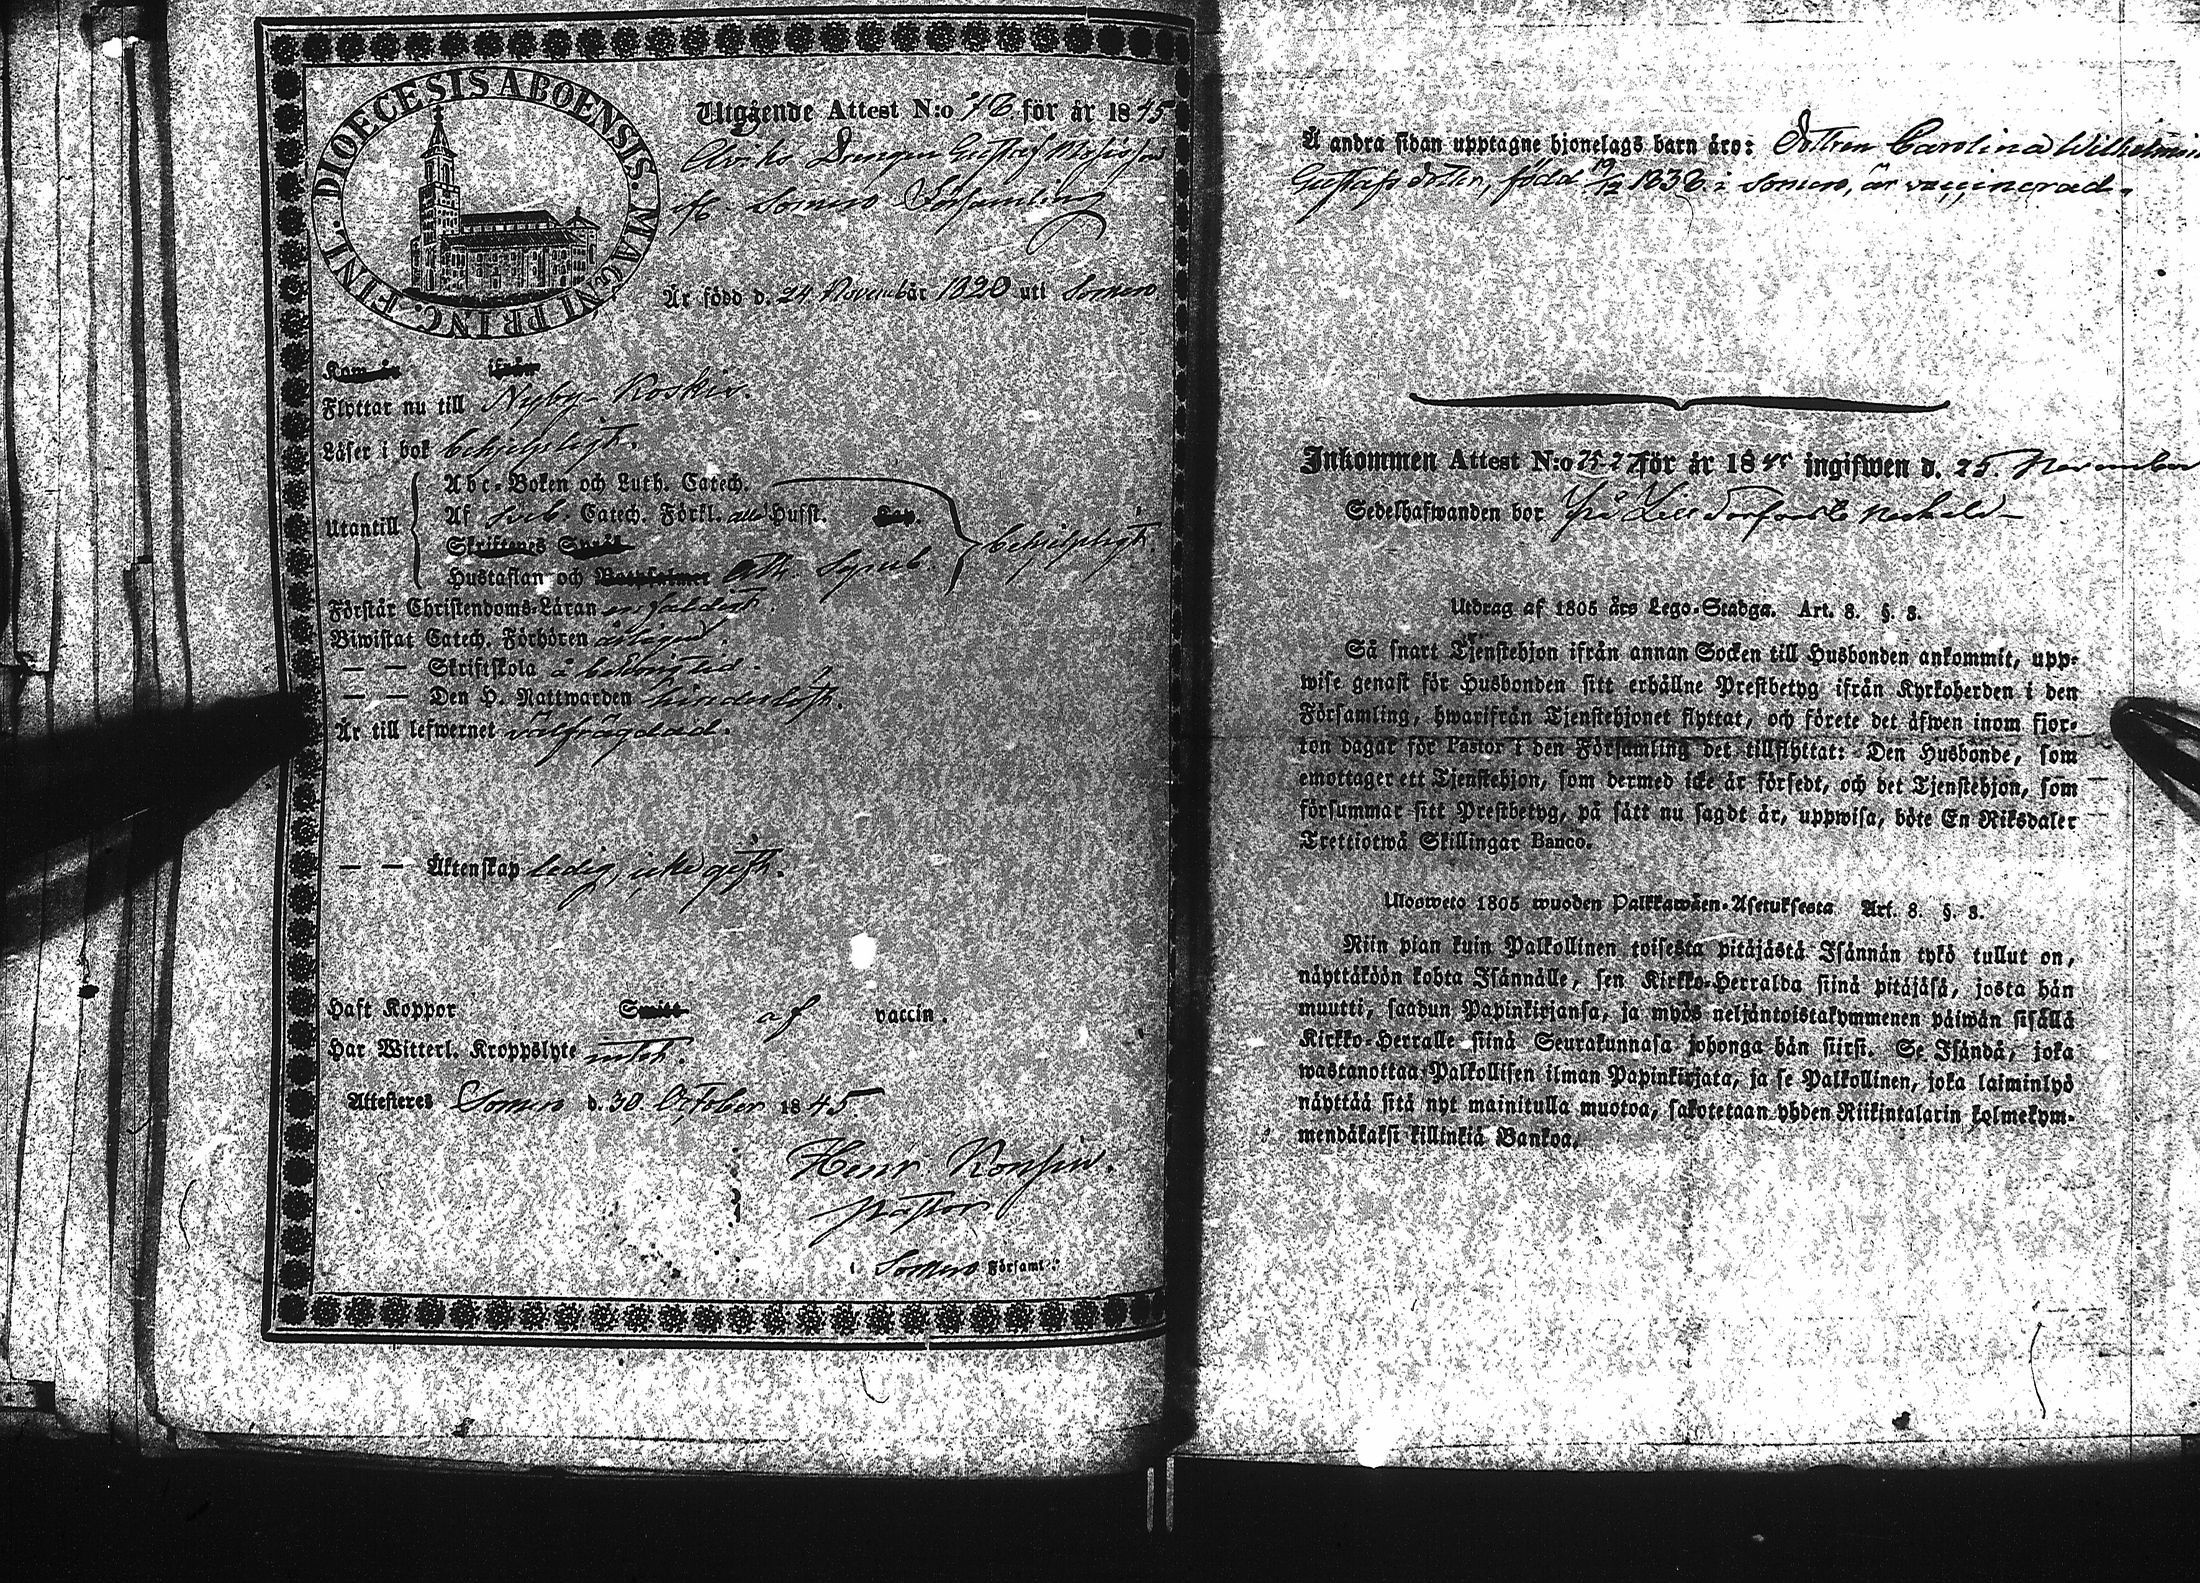 DIOECESIS ABOENSIS. MAGNI PRINC. FINL.
Utgående Attest N:o 78 för år 1845
Drengen Gustaf Mosisson
af Somero Församling
Är född d. 24 November 1820 uti Somero
Kom år ifrån
Flyttar nu till Nyby-Koskis.
Läser i bok behjelpligt.
Utantill
Abc-Boken och Luth. Catech.
Af Sveb. Catech. Förkl. alla Hufst. Cap.
Skriftenes Språk
Hustaflan och Botpsalmer Ath. Symb. behjelpligt.
Förstår Christendoms-Läran enfaldigt
Biwistat Catech. Förhören årligen.
— — Skriftskola å behörig tid.
— — Den H. Nattwarden hinderlöst.
Är till lefwernet välfrägdad.
— — Äktenskap ledig, icke gift.
Haft Koppor Smitt af vaccin.
Har Witterl. Kroppslyte intet.
Attesteres Somero d. 30 October 1845.
Henr
Pastor
i Somero Församl:
Å andra sidan upptagne hjonelags barn äro: Dottren Carolina Wilhelmina
Gustafsdotter, född 19/12 1838 i Somero, är vaccinerad.
Inkommen Attest N:o 75-27 för år 1845 ingifwen d. 25 November
Sedelhafwanden bor
Utdrag af 1805 års Lego-Stadga. Art. 8. §. 3.
Så snart Tjenstehjon ifrån annan Socken till Husbonden ankommit, upp-
wise genast för Husbonden sitt erhållne Prestbetyg ifrån Kyrkoherden i den
Församling, hwarifrån Tjenstehjonet flyttat, och förete det äfwen inom fjor-
ton dagar för Pastor i den Församling det tillflyttat: Den Husbonde, som
emottager ett Tjenstehjon, som dermed icke är försedt, och det Tjenstehjon, som
försummar sitt Prestbetyg, på sätt nu sagdt är, uppwisa, böte En Riksdaler
Trettiotwå Skillingar Banco.
Ulosweto 1805 wuoden Palkkawäen-Asetuksesta Art. 8. §. 3.
Niin pian kuin Palkollinen toisesta pitäjästä Isännän tykö tullut on,
näyttäköön kohta Isännälle, sen Kirkko-Herralda siinä pitäjäsä, josta hän
muutti, saadun Papinkirjansa, ja myös neljäntoistakymmenen päiwän sisällä
Kirkko-Herralle siinä Seurakunnasa johonga hän siirsi. Se Isändä, joka
wastanottaa Palkollisen ilman Papinkirjata, ja se Palkollinen, joka laiminlyö
näyttää sitä nyt mainitulla muotoa, sakotetaan yhden Riikintalarin kolmekym-
mendäkaksi killinkiä Bankoa.